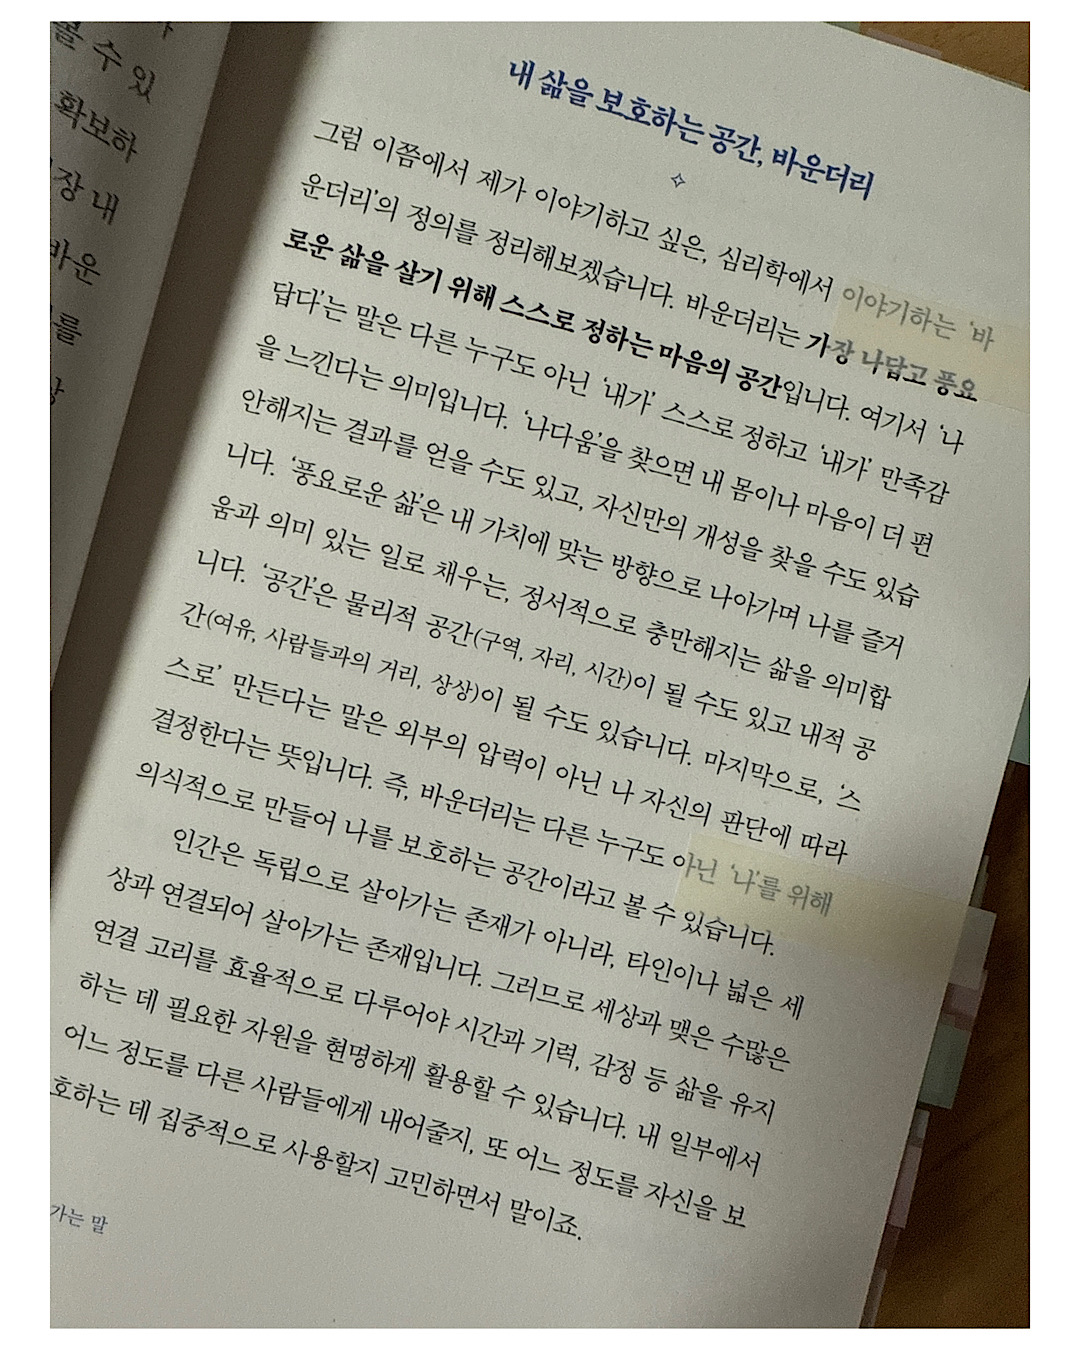 볼 수 있
확보하
장 내
바운
를
상
내 삶을 보호하는 공간, 바운더리
그럼 이쯤에서 제가 이야기하고 싶은, 심리학에서 이야기하는 ‘바
운더리’의 정의를 정리해보겠습니다. 바운더리는 가장 나답고 풍요
로운 삶을 살기 위해 스스로 정하는 마음의 공간입니다. 여기서 ‘나
답다’는 말은 다른 누구도 아닌 ‘내가’ 스스로 정하고 ‘내가’ 만족감
을 느낀다는 의미입니다. ‘나다움’을 찾으면 내 몸이나 마음이 더 편
안해지는 결과를 얻을 수도 있고, 자신만의 개성을 찾을 수도 있습
니다. ‘풍요로운 삶’은 내 가치에 맞는 방향으로 나아가며 나를 즐거
움과 의미 있는 일로 채우는, 정서적으로 충만해지는 삶을 의미합
니다. ‘공간’은 물리적 공간(구역, 자리, 시간)이 될 수도 있고 내적 공
간(여유, 사람들과의 거리, 상상)이 될 수도 있습니다. 마지막으로, ‘스
스로’ 만든다는 말은 외부의 압력이 아닌 나 자신의 판단에 따라
결정한다는 뜻입니다. 즉, 바운더리는 다른 누구도 아닌 ‘나’를 위해
의식적으로 만들어 나를 보호하는 공간이라고 볼 수 있습니다.
인간은 독립으로 살아가는 존재가 아니라, 타인이나 넓은 세
상과 연결되어 살아가는 존재입니다. 그러므로 세상과 맺은 수많은
연결 고리를 효율적으로 다루어야 시간과 기력, 감정 등 삶을 유지
하는 데 필요한 자원을 현명하게 활용할 수 있습니다. 내 일부에서
어느 정도를 다른 사람들에게 내어줄지, 또 어느 정도를 자신을 보
호하는 데 집중적으로 사용할지 고민하면서 말이죠.
가는 말